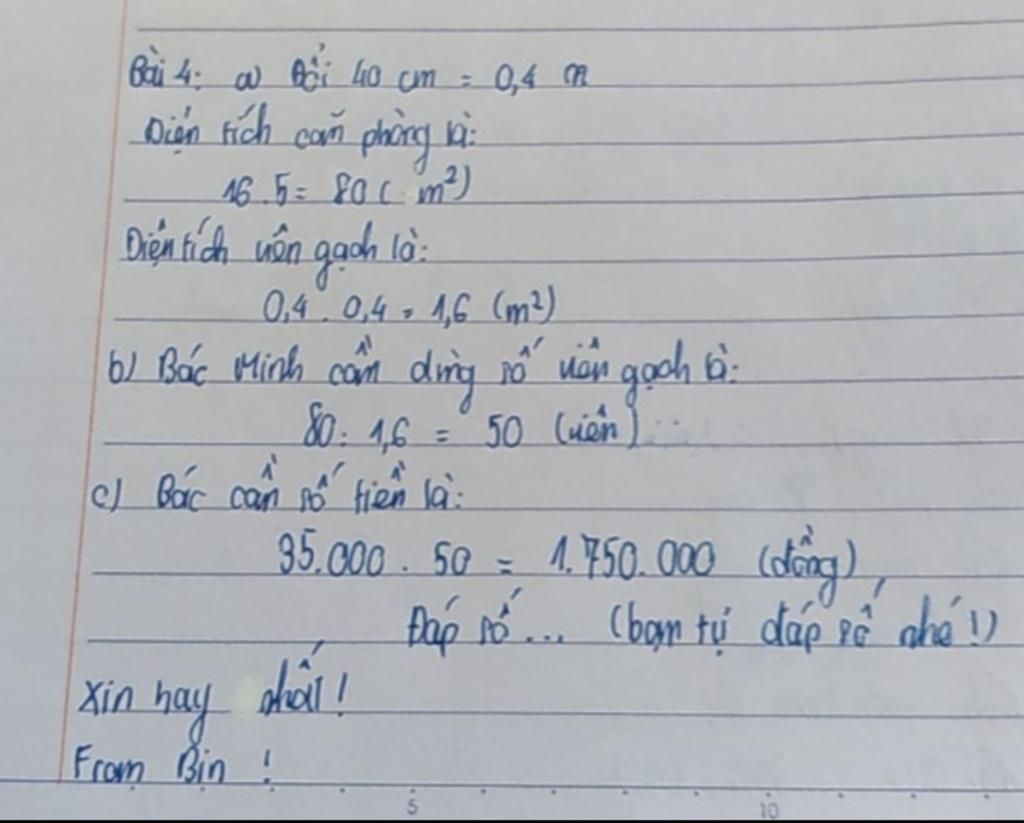 Bài 4: a) Đổi 40 cm = 0,4 m
Diện tích căn phòng là:
16.5 = 80 ( m²)
Diện tích viên gạch là:
0,4 . 0,4 = 1,6 (m²)
b) Bác Minh cần dùng số viên gạch là:
80 : 1,6 = 50 (viên)
c) Bác cần số tiền là:
35.000 . 50 = 1.750.000 (đồng)
Đáp số... (bạn tự đáp số nhé!)
Xin hay nhất!
From Bin !
5 10